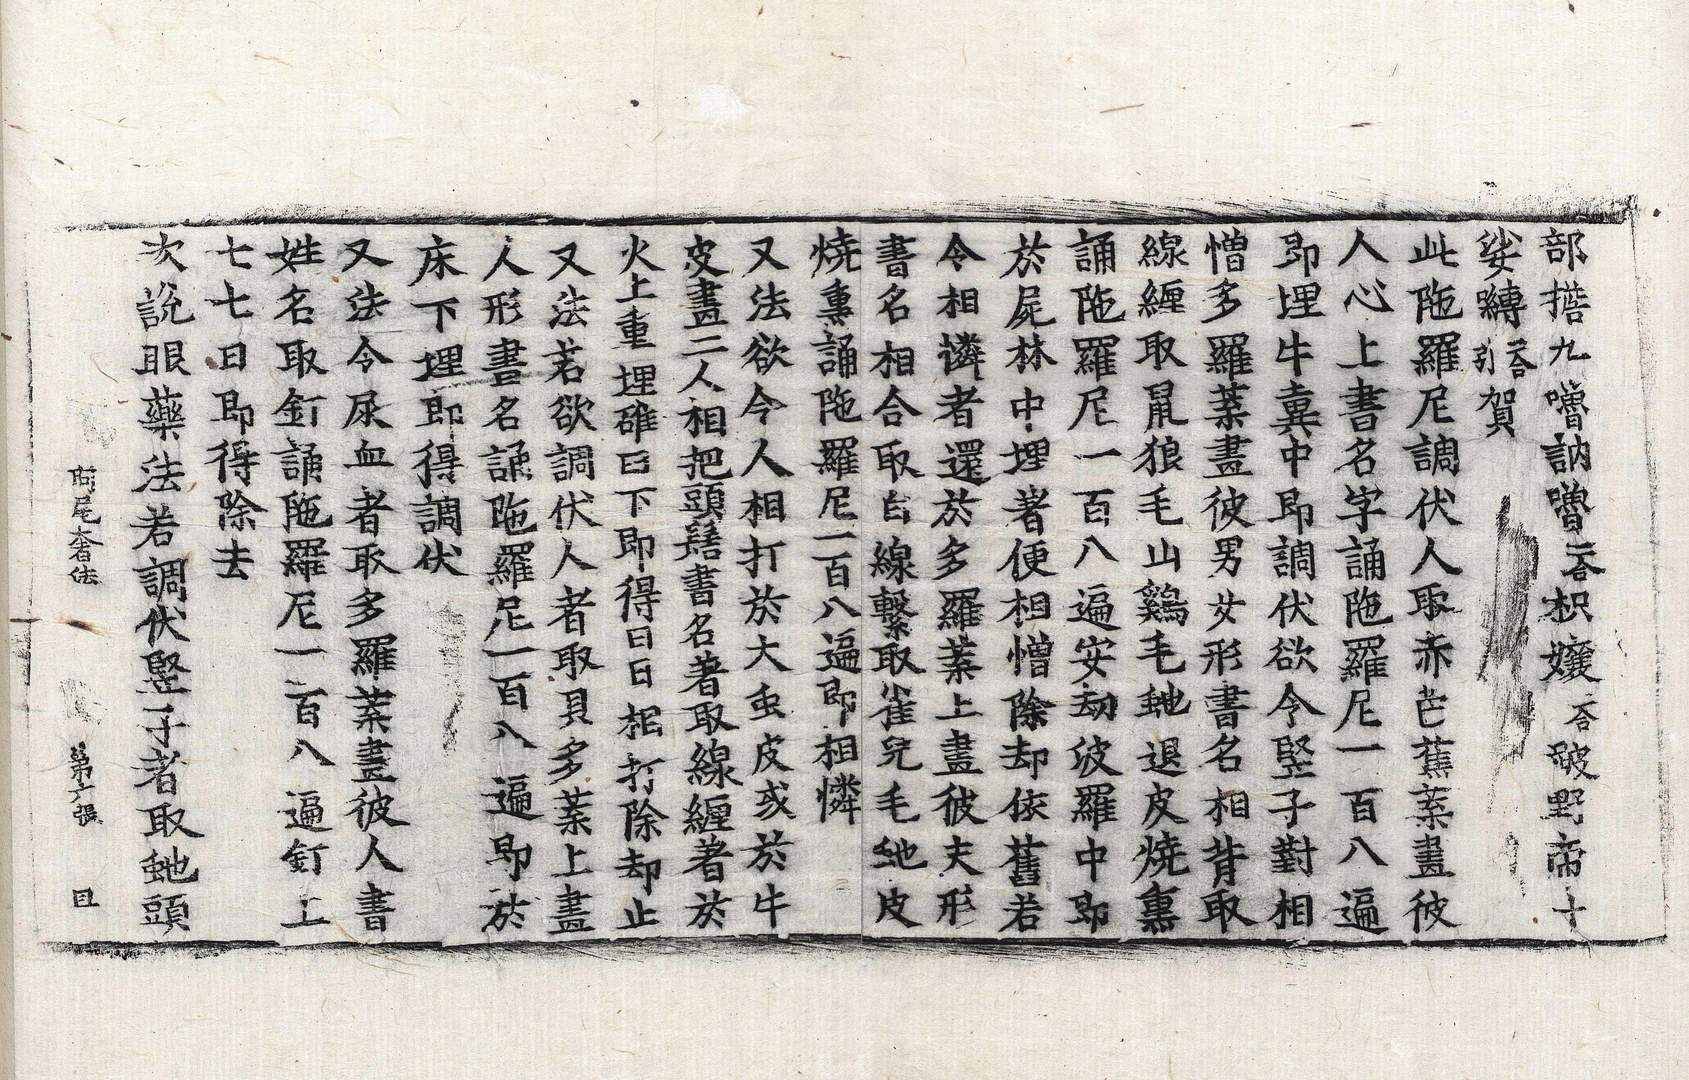 部搭九嚕訥嚕二合枳孃二合皤野帝十
娑嚩二合引賀
此陁羅尼調伏人取赤芒蕉葉畫彼
人心上書名字誦陁羅尼一百八遍
即埋牛糞中即調伏欲令竪子對相
憎多羅葉畫彼男女形書名相背取
線纏取鼠狼毛山鷄毛虵退皮燒熏
誦陁羅尼一百八遍安劫波羅中即
於屍林中埋著便相憎除却依舊若
令相憐者還於多羅葉上畫彼夫形
書名相合取白線繫取雀兒毛虵皮
燒熏誦陁羅尼一百八遍即相憐
又法欲令人相打於大虫皮或於牛
皮畫二人相把頭髻書名著取線纏著於
火上熏埋碓臼下即得日日相打除却止
又法若欲調伏人者取貝多葉上畫
人形書名誦陁羅尼一百八遍即於
床下埋即得調伏
又法令尿血者取多羅葉畫彼人書
姓名取釘誦陁羅尼一百八遍釘上
七七日即得除去
次說眼藥法若調伏竪子者取虵頭
阿尾奢法 第六張